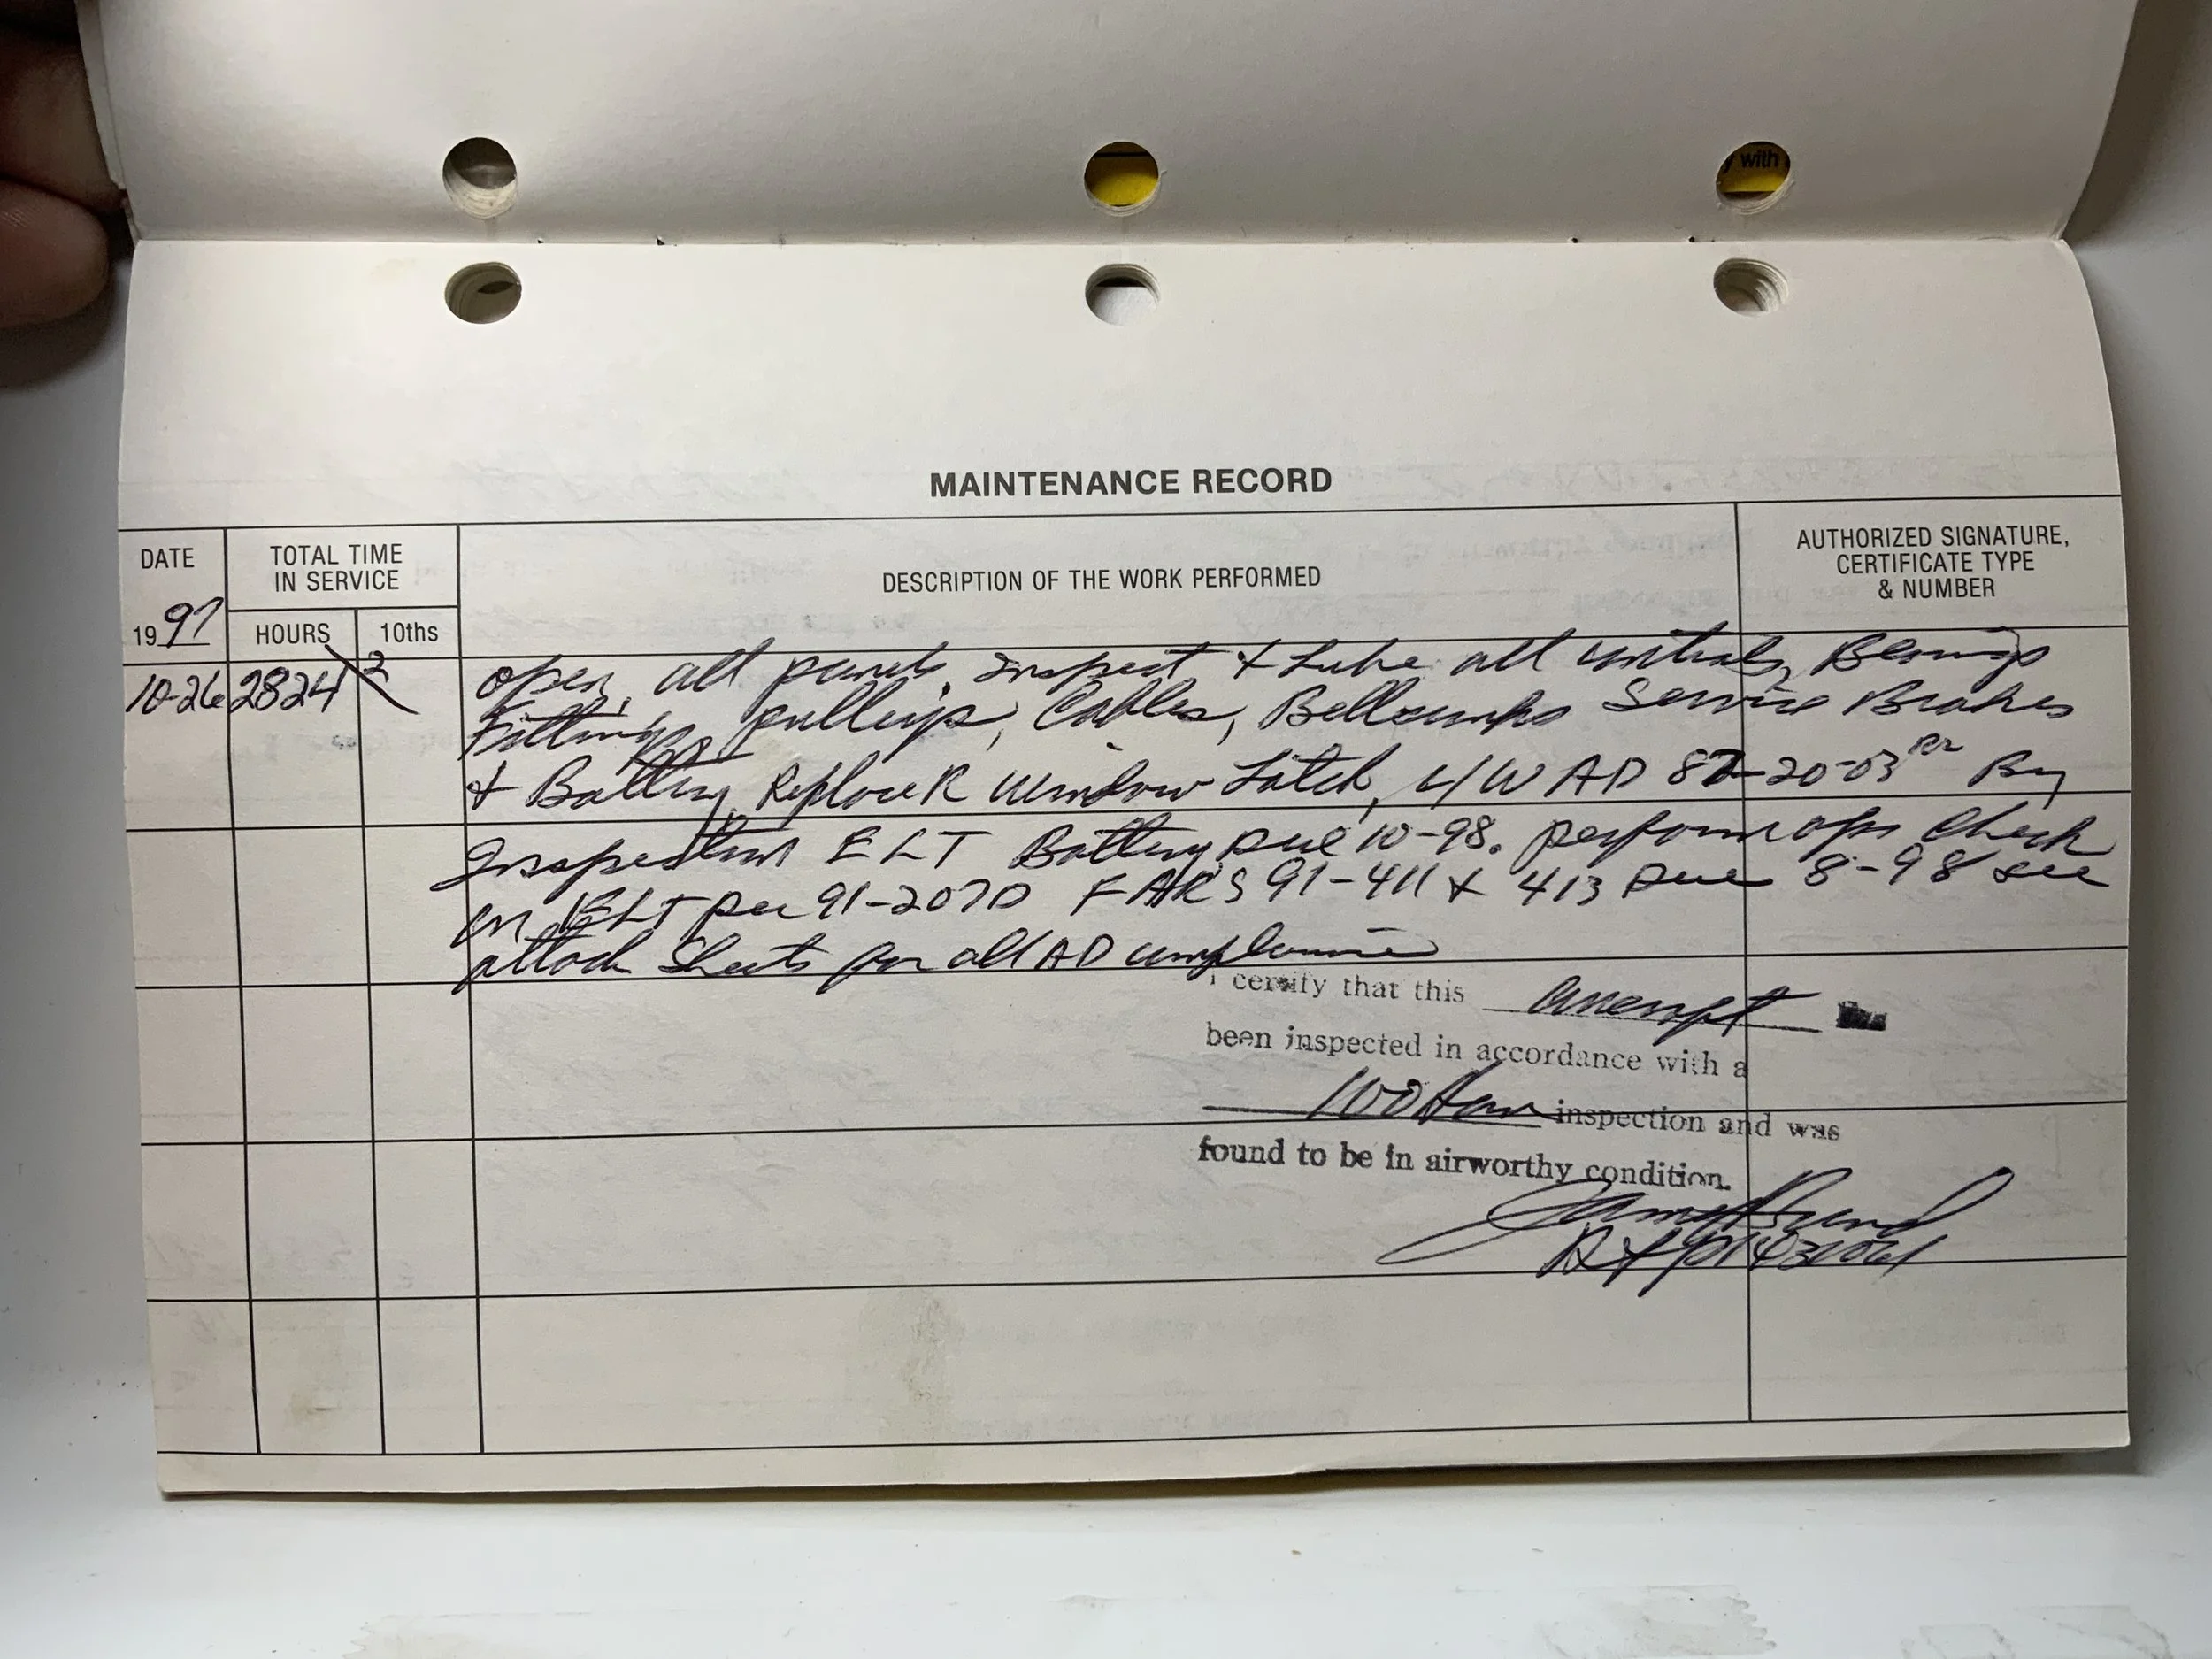 y with
MAINTENANCE RECORD
DATE
1997
TOTAL TIME
IN SERVICE
HOURS
10ths
DESCRIPTION OF THE WORK PERFORMED
AUTHORIZED SIGNATURE,
CERTIFICATE TYPE
& NUMBER
10-26 2824 2
open all panels, Inspect + Lube all controls, Bearings
Fittings, pulleys, Cables, Bellcranks Service Brakes
+ Battery, Replace R window Latch, C/W AD 87-20-03 R2 By
Inspection ELT Battery Due 10-98. perform ops check
on ELT per 91-207D FARS 91-411 + 413 Due 8-98 see
attach Sheets for all AD compliance
I certify that this
been inspected in accordance with a
100 hour inspection and was
found to be in airworthy condition.
James